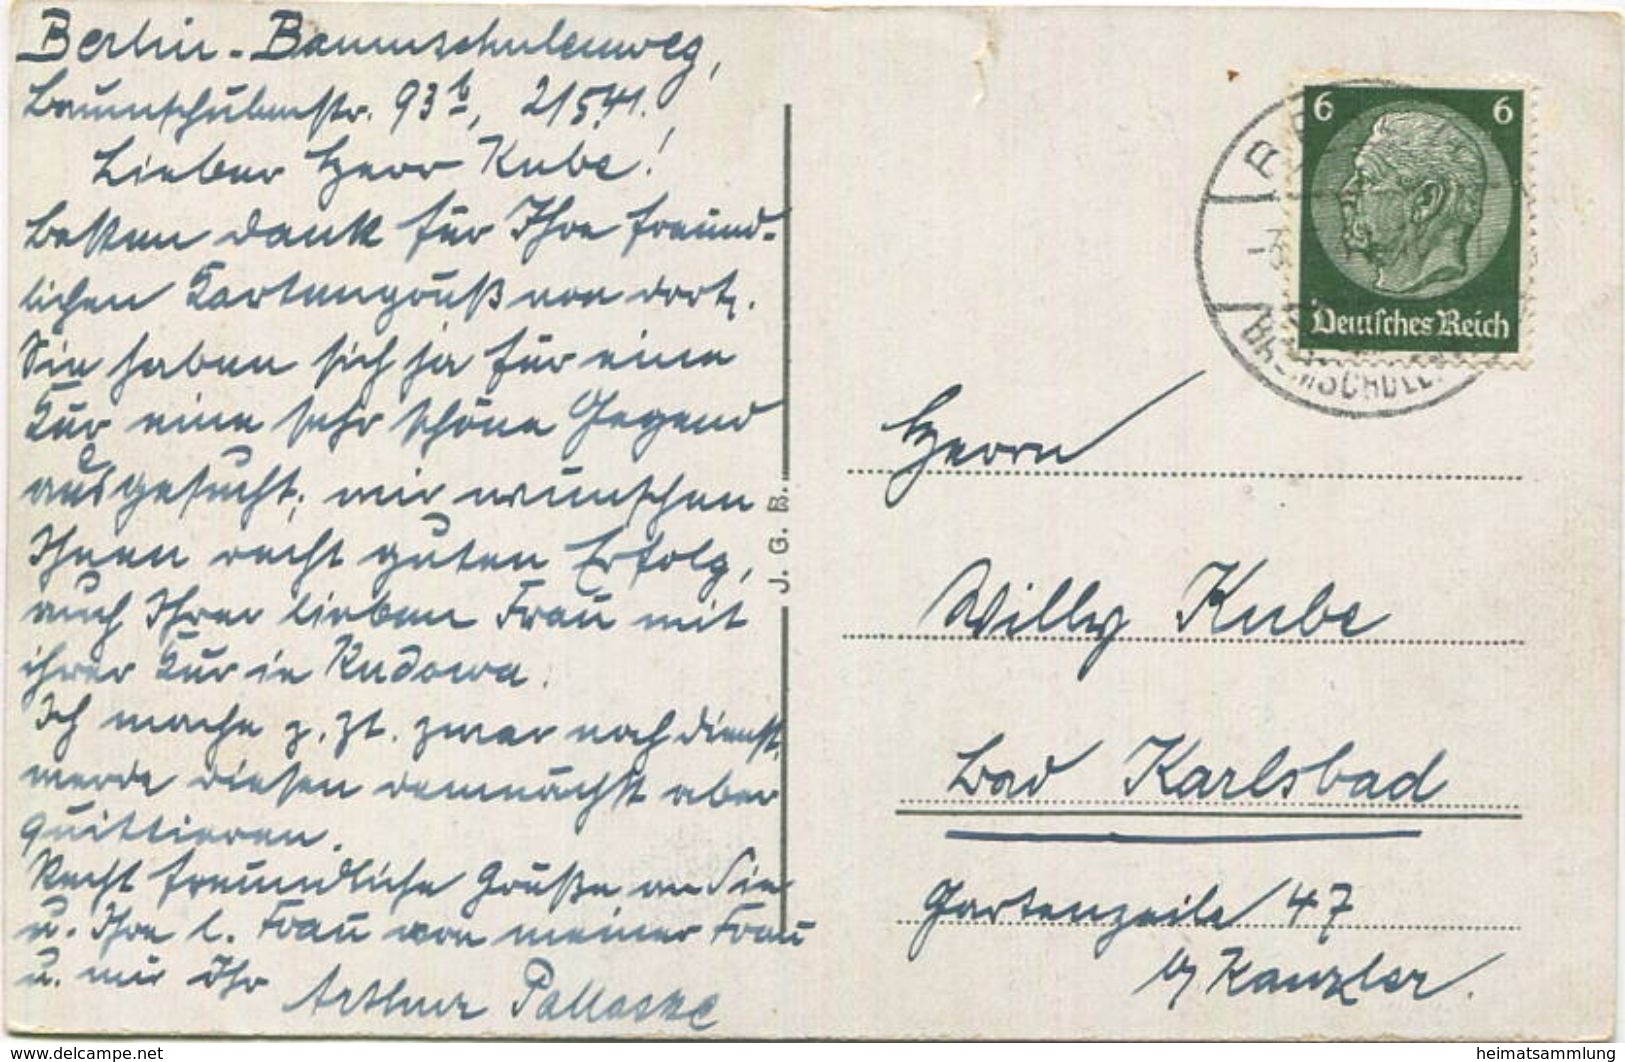 Berlin-Baumschulenweg,
Baumschulenstr. 93b, 2/5.41.
Lieber Herr Kube!
Besten Dank für Ihre freund-
lichen Kartengruß von dort.
Sie haben sich ja für eine
Kur eine sehr schöne Gegend
ausgesucht; wir wünschen
Ihnen recht guten Erfolg,
auch Ihrer lieben Frau mit
ihrer Kur in Kudowa.
Ich mache z. Zt. zwar noch Dienst,
werde diesen demnächst aber
quittieren.
Recht freundliche Grüße an Sie
u. Ihre l. Frau von meiner Frau
u. mir Ihr Arthur Pallaske
J. G. B.
6 6
Deutsches Reich
Herrn
Willy Kube
Bad Karlsbad
Gartenzeile 47
b/ Kanzler.
www.delcampe.net
heimatsammlung